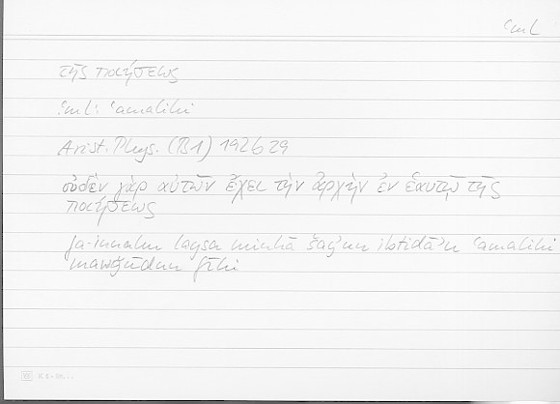 ʿmL
τῆς ποιήσεως
ʿmL: ʿamalihi
Arist. Phys. (B1) 192b29
οὐδὲν γὰρ αὐτῶν ἔχει τὴν ἀρχὴν ἐν ἑαυτῷ τῆς
ποιήσεως
fa-innahu laysa minhā šayʾun ibtidāʾu ʿamalihi
mawǧūdun fīhi